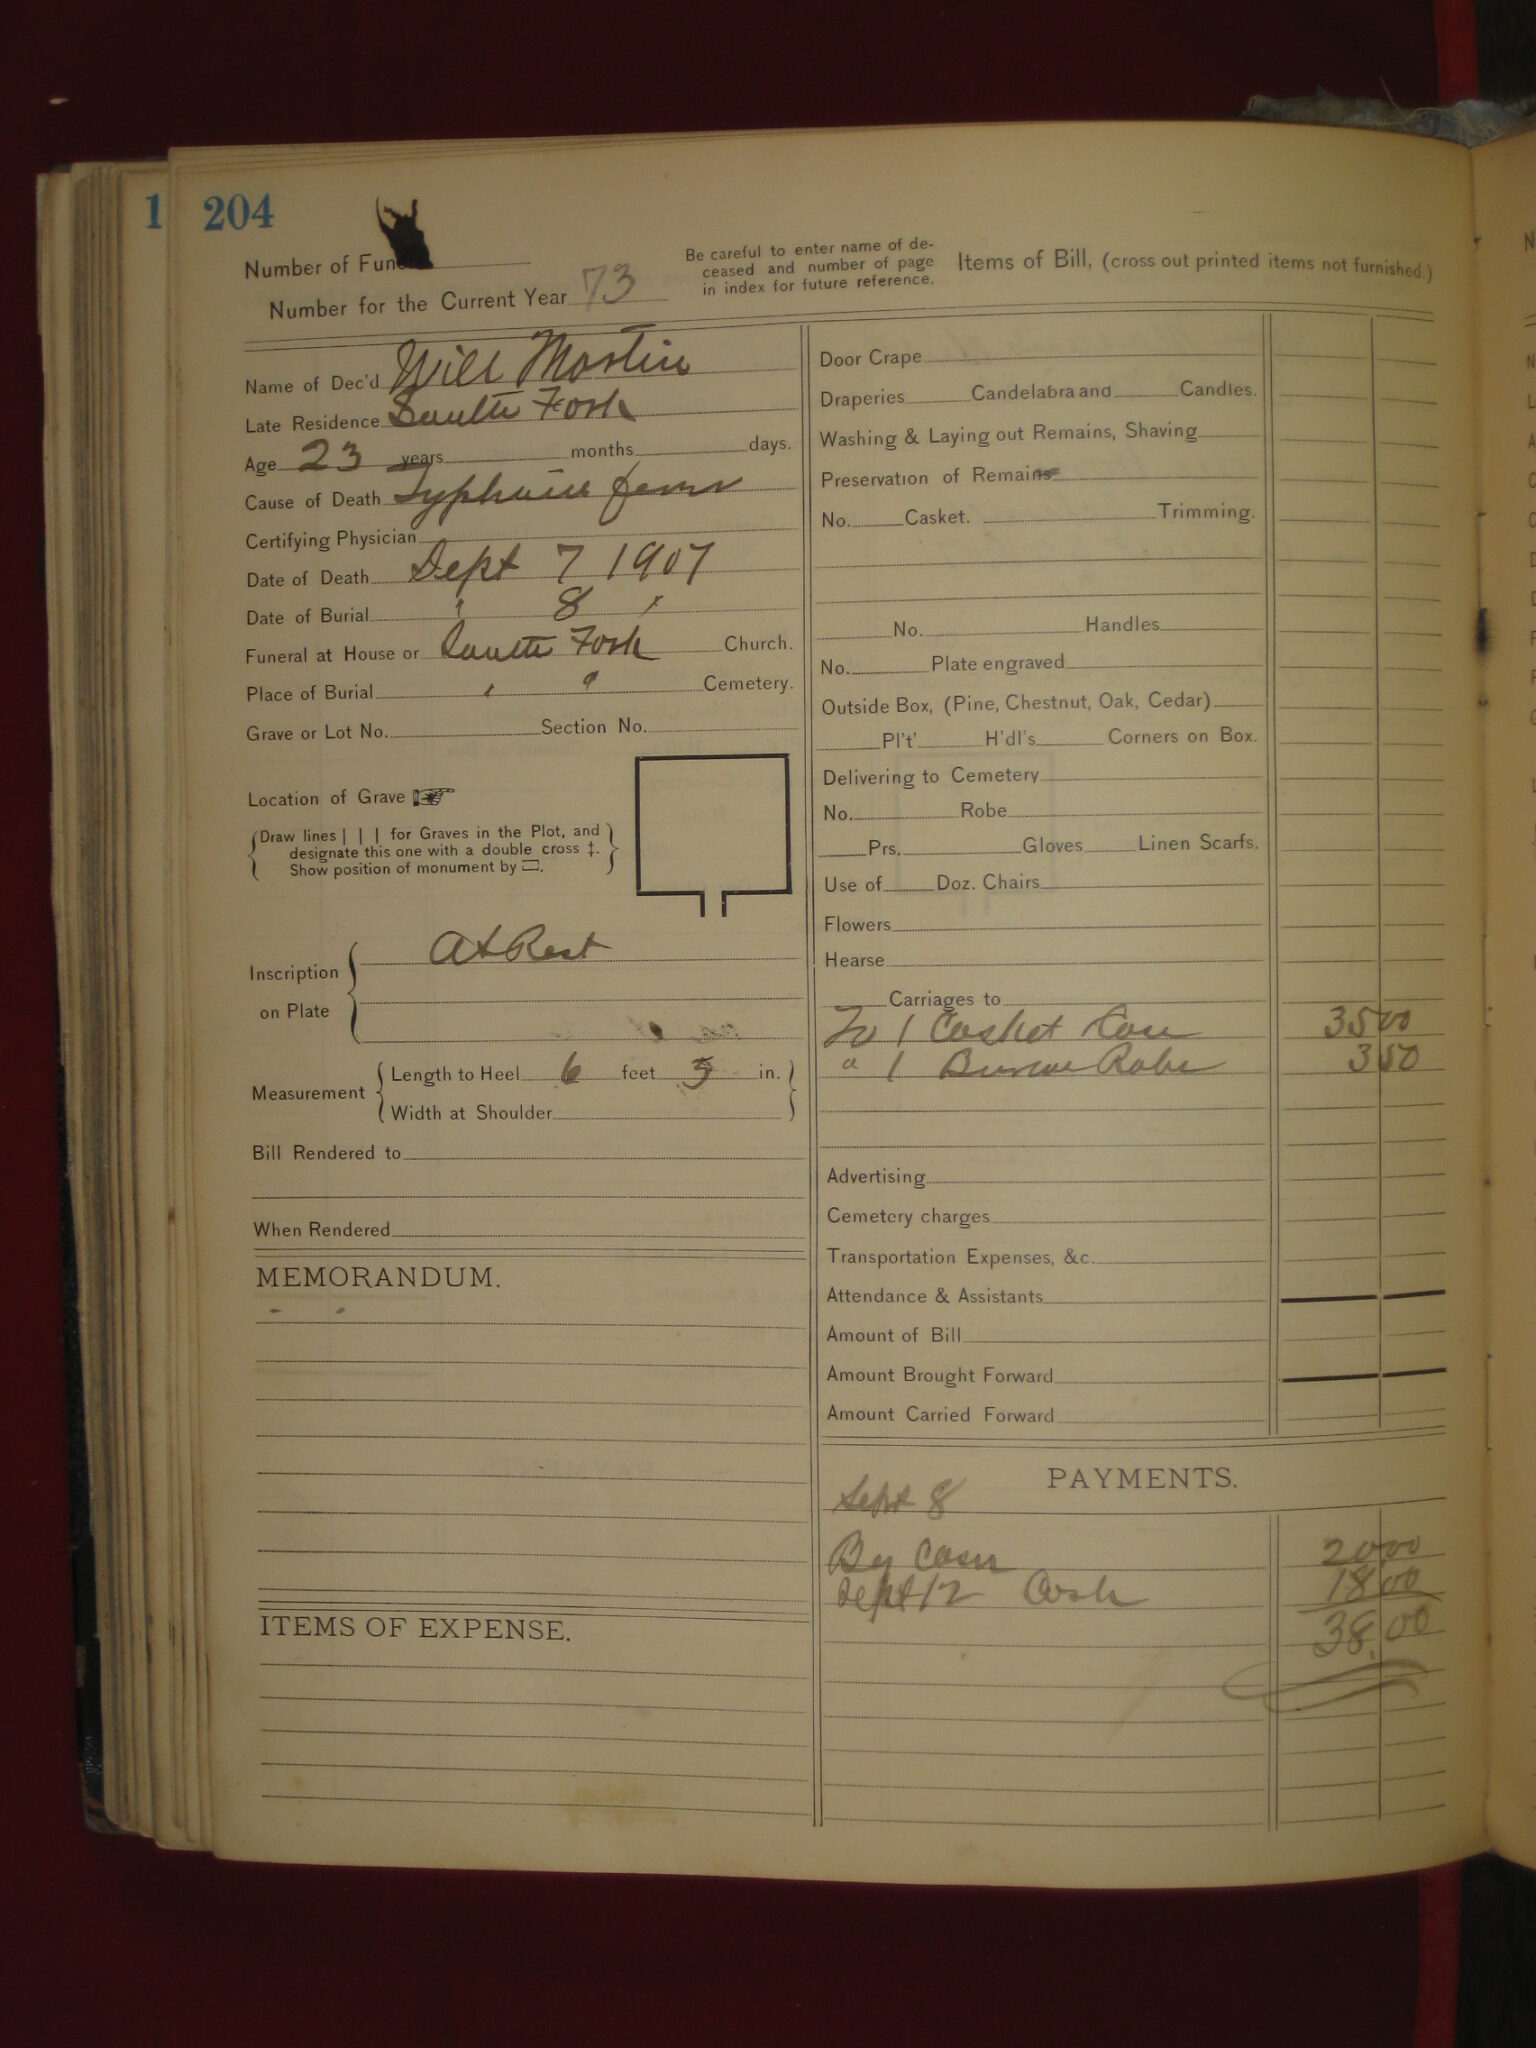 1 204
Number of Fun
Number for the Current Year 73
Be careful to enter name of de-
ceased and number of page
in index for future reference.
Name of Dec'd Will Martin
Late Residence South Fork
Age 23 years months days.
Cause of Death fever
Certifying Physician
Date of Death Sept 7 1907
Date of Burial " 8 "
Funeral at House or South Fork Church.
Place of Burial " " Cemetery.
Grave or Lot No. Section No.
Location of Grave
Draw lines | | | for Graves in the Plot, and
designate this one with a double cross ‡.
Show position of monument by ▭.
Inscription
on Plate
At Rest
Measurement
Length to Heel 6 feet 3 in.
Width at Shoulder
Bill Rendered to
When Rendered
MEMORANDUM.
ITEMS OF EXPENSE.
Items of Bill, (cross out printed items not furnished.)
Door Crape
Draperies Candelabra and Candles.
Washing & Laying out Remains, Shaving
Preservation of Remains
No. Casket. Trimming.
No. Handles
No. Plate engraved
Outside Box, (Pine, Chestnut, Oak, Cedar)
Pl't' H'dl's Corners on Box.
Delivering to Cemetery
No. Robe
Prs. Gloves Linen Scarfs.
Use of Doz. Chairs
Flowers
Hearse
Carriages to
To 1 Casket 35 00
" 1 Robe 3 50
Advertising
Cemetery charges
Transportation Expenses, &c.
Attendance & Assistants
Amount of Bill
Amount Brought Forward
Amount Carried Forward
PAYMENTS.
Sept 8
By Cash 20 00
Sept 12 Cash 18 00
38.00